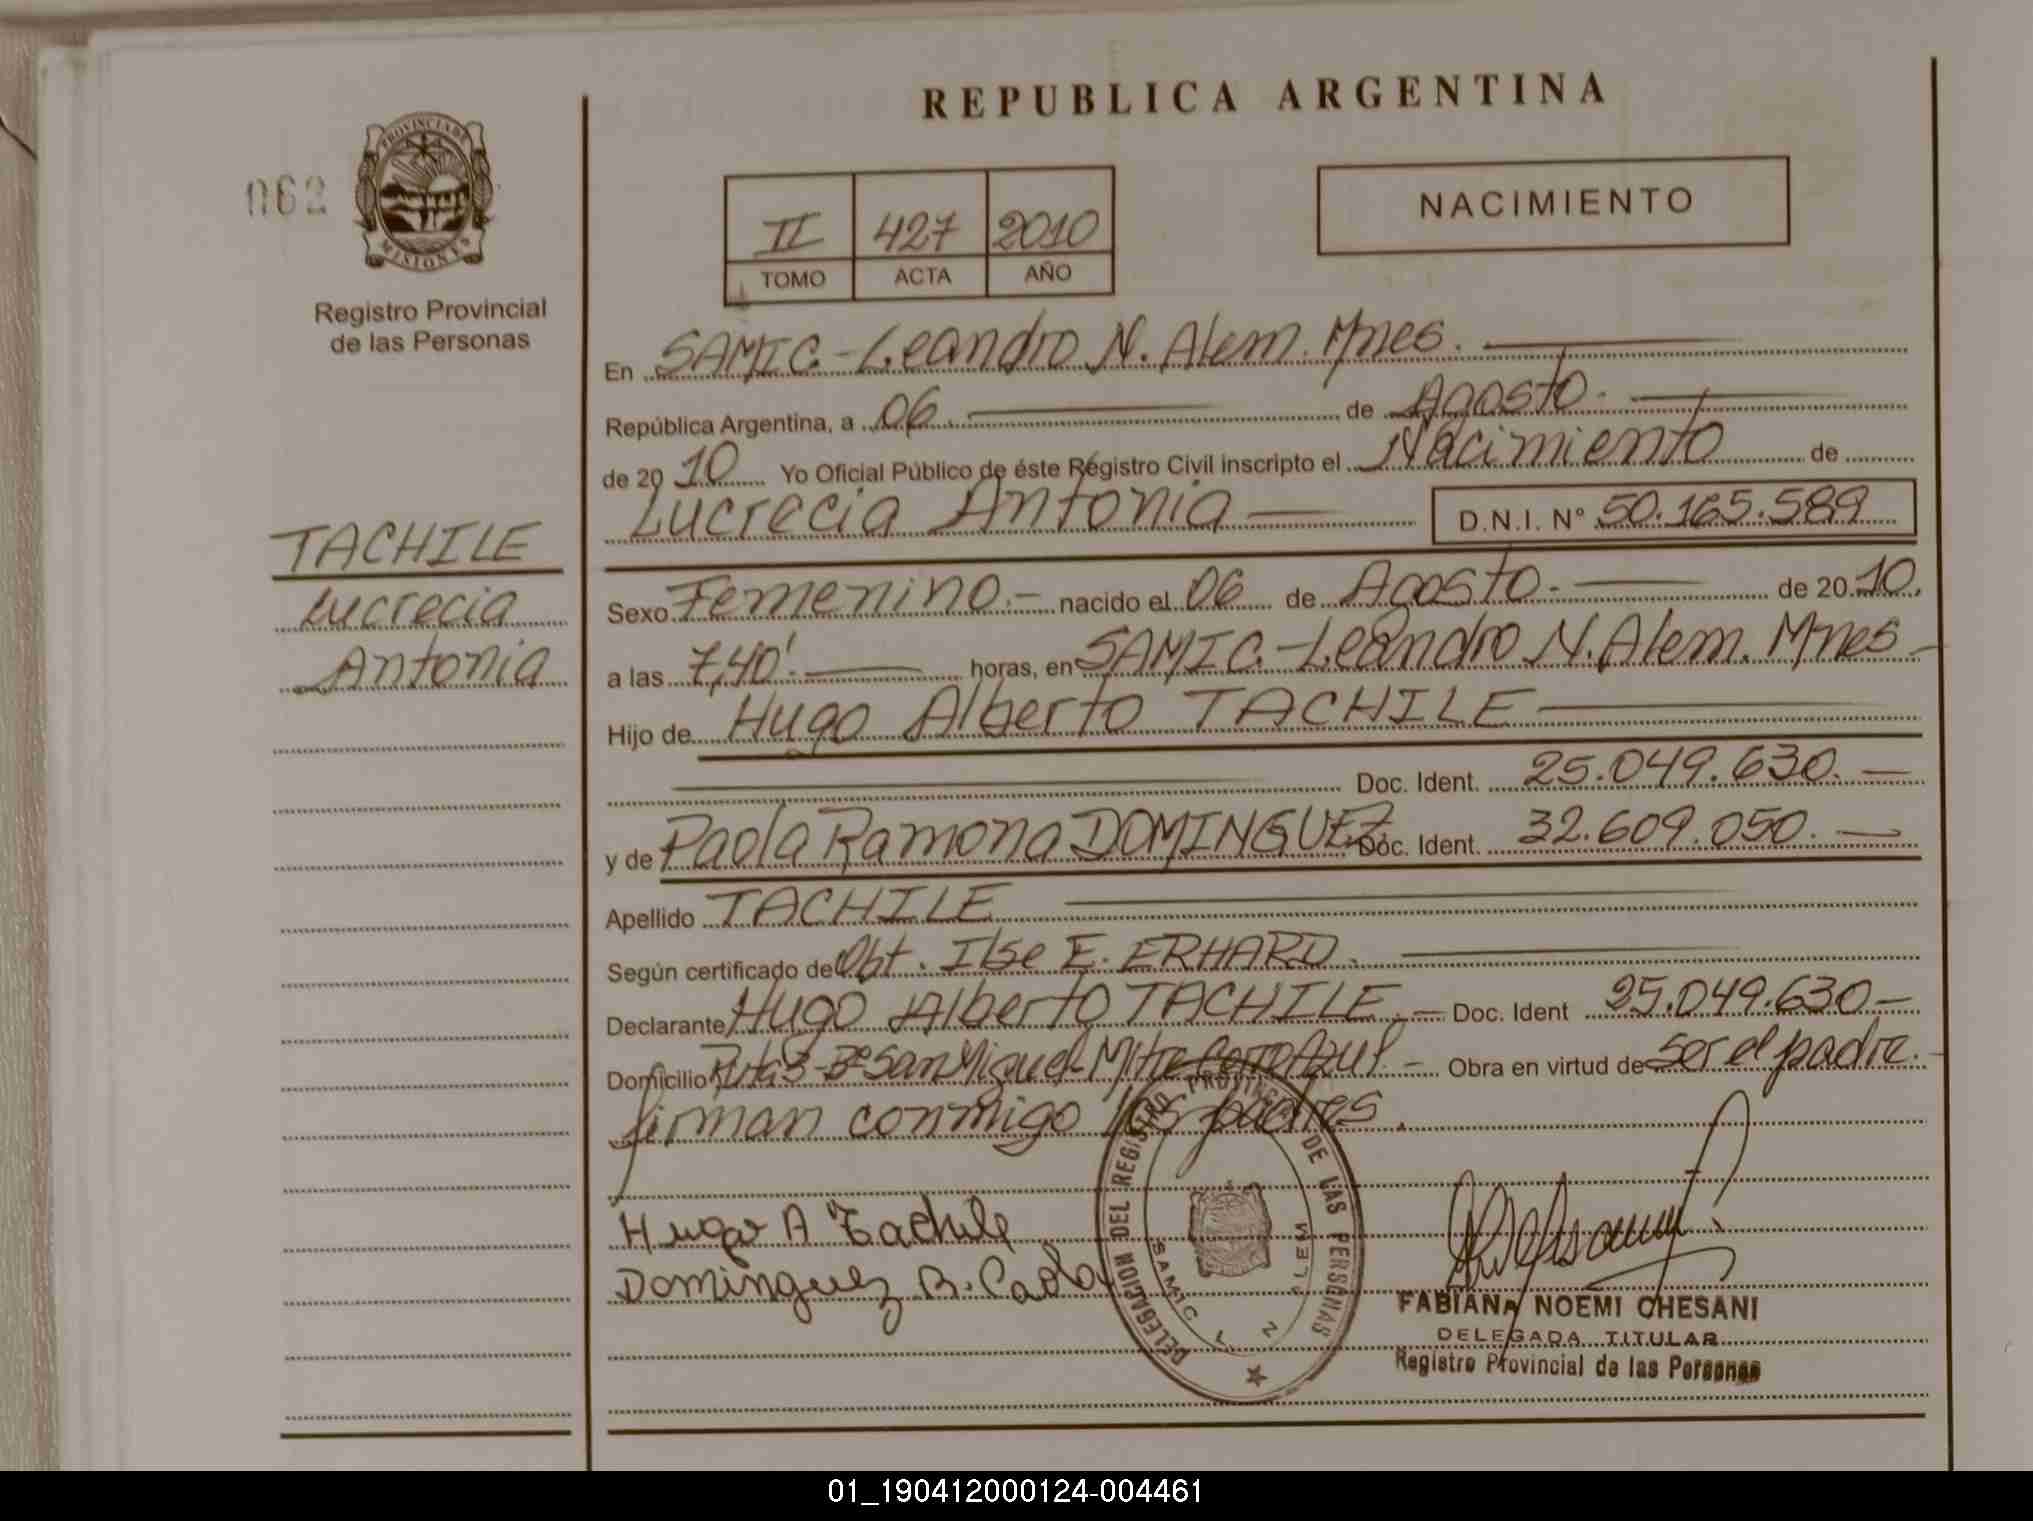 REPUBLICA ARGENTINA
062
PROVINCIA DE
MISIONES
Registro Provincial
de las Personas
II 427 2010
TOMO ACTA AÑO
NACIMIENTO
En SAMIC.-Leandro N. Alem. Mnes.
República Argentina, a 06. de Agosto.
de 2010 Yo Oficial Público de éste Registro Civil inscripto el Nacimiento de
Lucrecia Antonia D.N.I. N° 50.165.589
TACHILE
Lucrecia
Antonia
Sexo Femenino.- nacido el 06 de Agosto.- de 2010.
a las 7,40'. horas, en SAMIC.-Leandro N. Alem. Mnes
Hijo de Hugo Alberto TACHILE
Doc. Ident. 25.049.630.
y de Paola Ramona DOMINGUEZ Doc. Ident. 32.609.050.
Apellido TACHILE
Según certificado de Obt. Ilse E. ERHARD.
Declarante Hugo Alberto TACHILE.- Doc. Ident 25.049.630-
Domicilio Ruta 3-B° San Miguel-Mitre Cerro Azul.- Obra en virtud de ser el padre.-
firman conmigo los padres.
Hugo A Tachile
Dominguez R. Paola
DELEGACION DEL REGISTRO PROVINCIAL DE LAS PERSONAS
SAMIC L N ALEM
FABIANA NOEMI CHESANI
DELEGADA TITULAR
Registro Provincial de las Personas
01_190412000124-004461